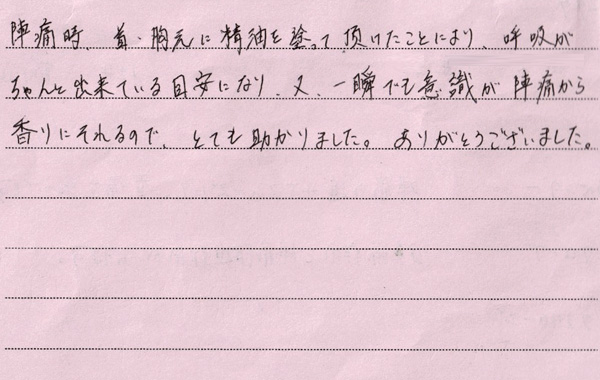 陣痛時、首・胸元に精油を塗って頂けたことにより、呼吸が
ちゃんと出来ている目安になり、又、一瞬でも意識が陣痛から
香りにそれるので、とても助かりました。ありがとうございました。